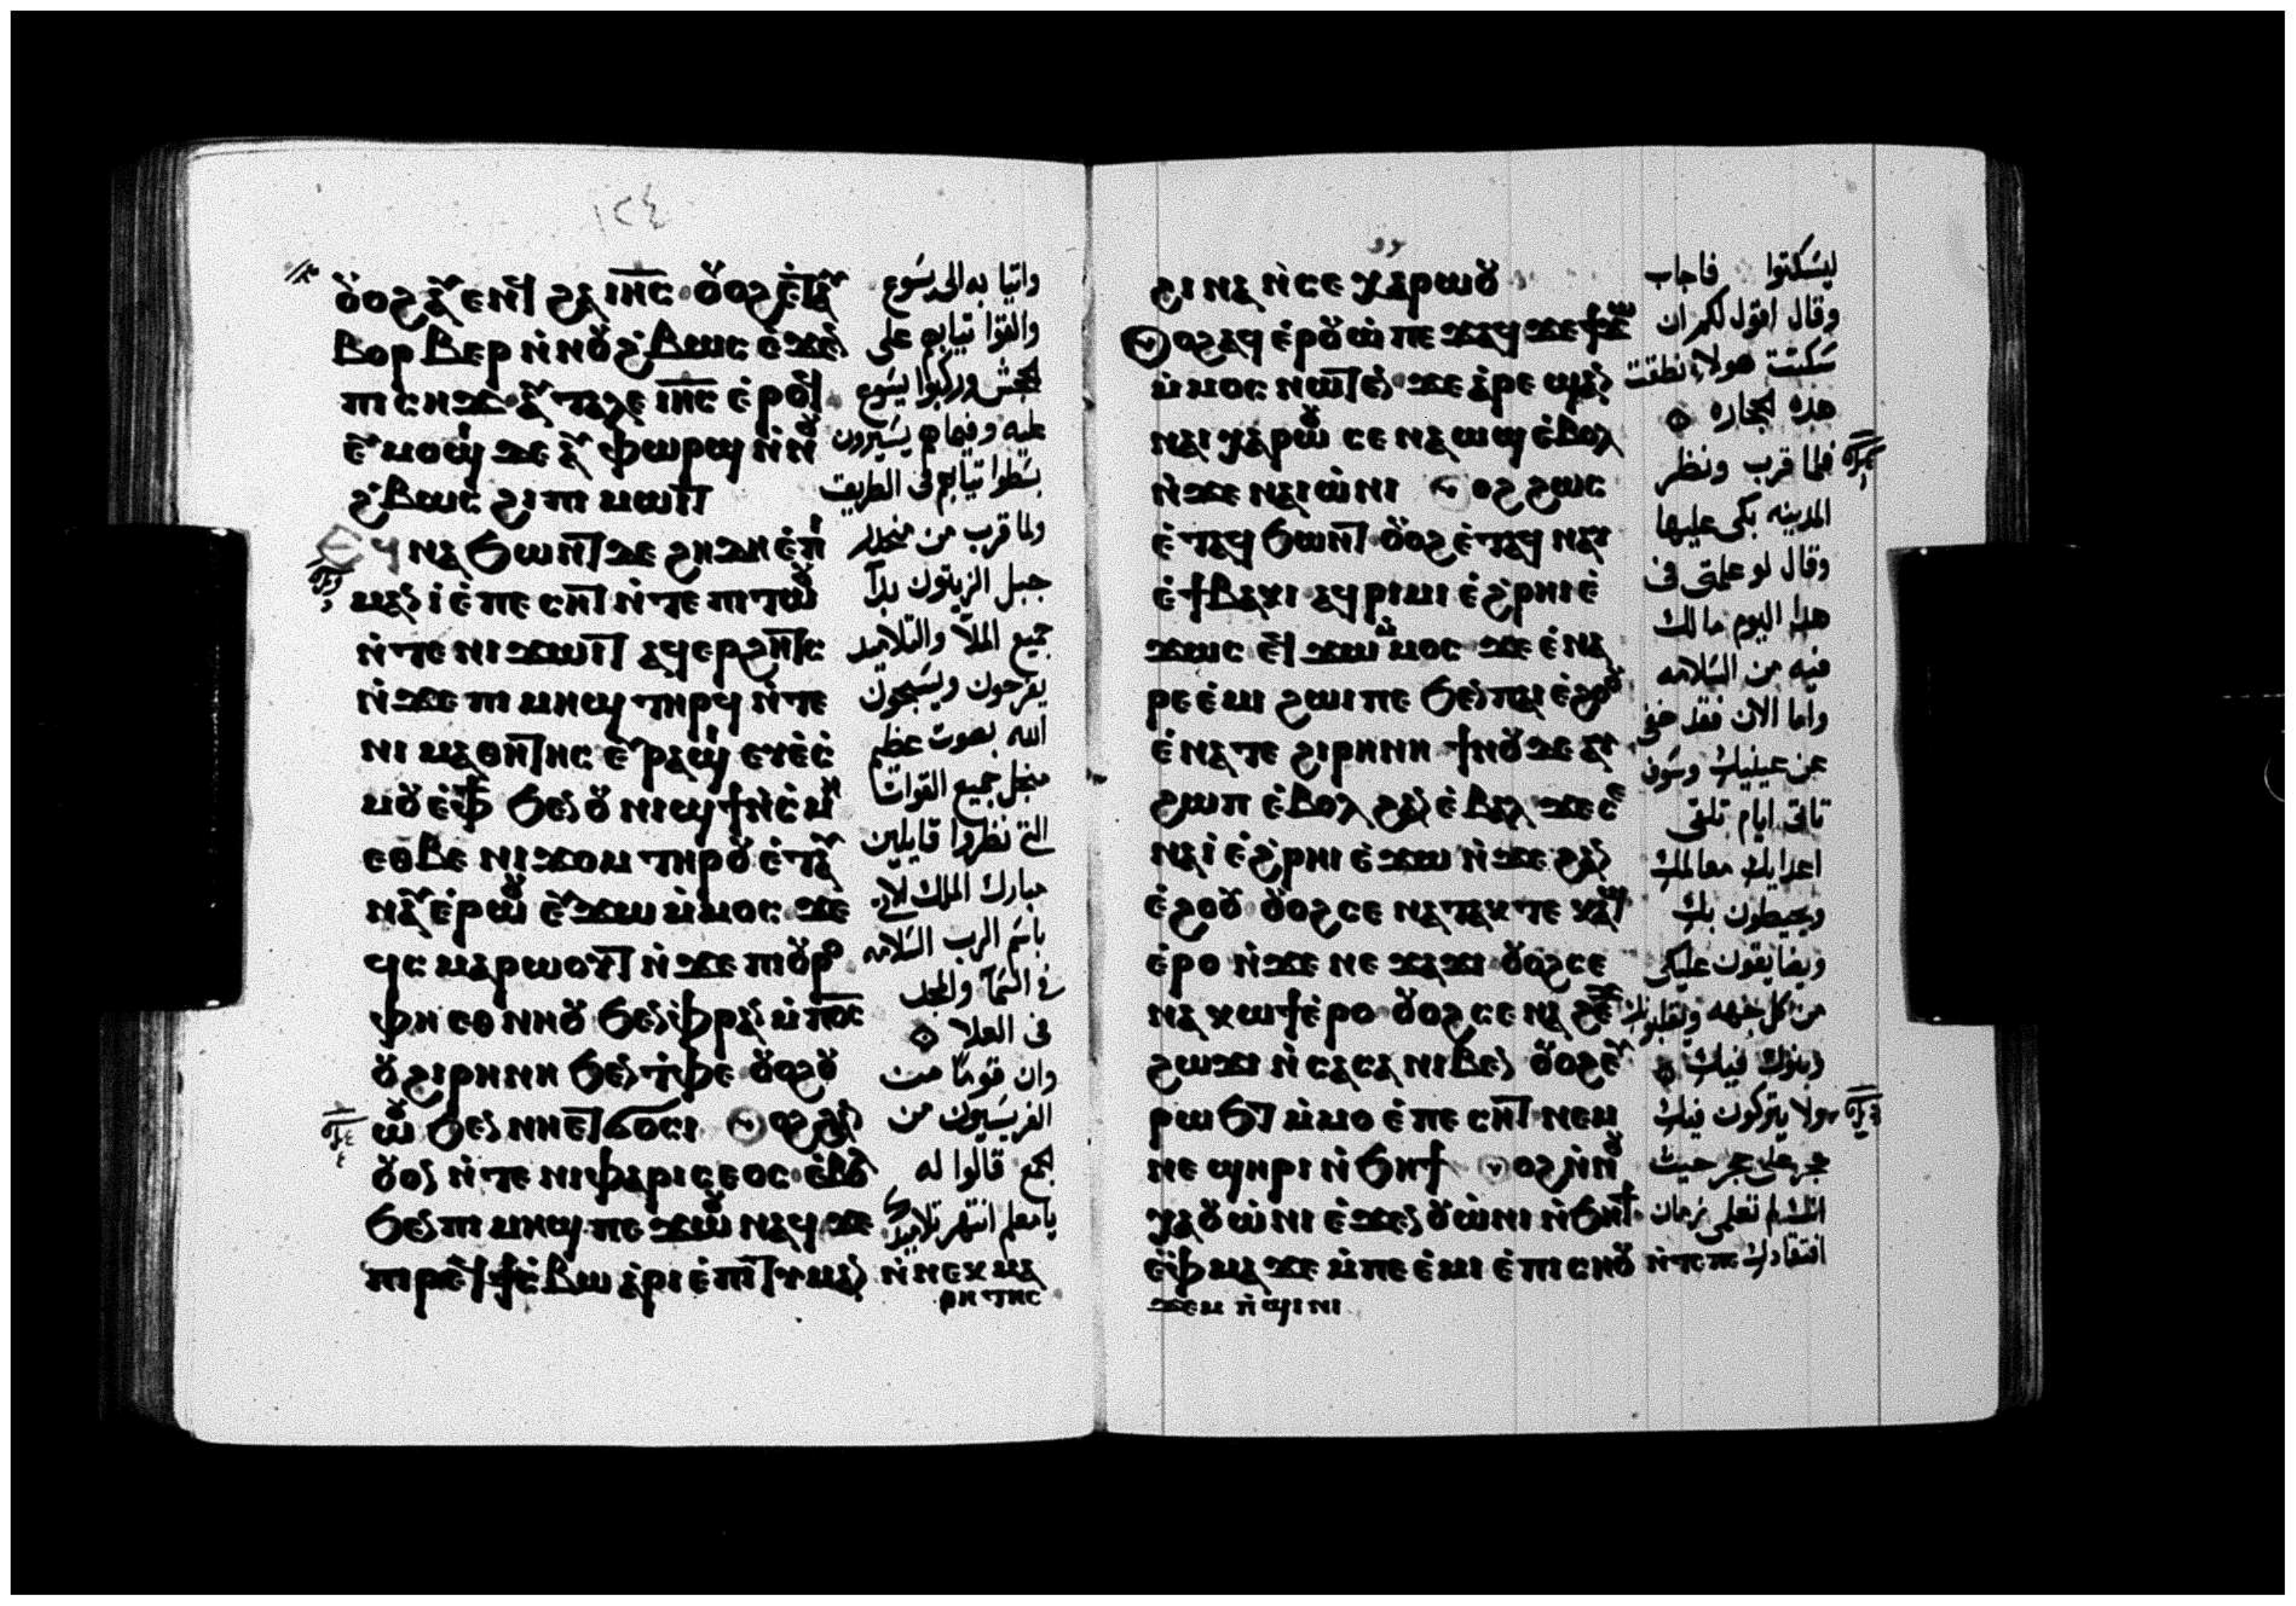 ١٢٤
ⲟⲩⲟϩ ⲁⲩⲉⲛϥ ϩⲁ ⲓⲏⲥ ⲟⲩⲟϩ ⲉⲧⲁⲩ
ⲃⲟⲣⲃⲉⲣ ⲛ̀ⲛⲟⲩϩ̀ⲃⲱⲥ ⲉ̀ϫⲉⲛ
ⲡⲓⲥⲏϫ ⲁⲩⲧⲁⲗⲉ ⲓⲏⲥ ⲉ̀ⲣⲟϥ
ⲉⲩⲙⲟϣⲓ ϫⲉ ⲁⲩⲫⲱⲣϣ ⲛ̀ⲛⲟⲩ
ϩ̀ⲃⲱⲥ ϩⲓ ⲡⲓ ⲙⲱⲓⲧ
ⲉϥⲛⲁϧⲱⲛⲧ ϫⲉ ϩⲏϫⲏ ⲉ̀ⲡⲓ
ⲙⲁⲛⲓ̀ ⲉ̀ⲡⲉⲥⲏⲧ ⲛ̀ⲧⲉ ⲡⲓⲧⲱⲟⲩ
ⲛ̀ⲧⲉ ⲛⲓϫⲱⲓⲧ ⲁϥⲉⲣϩⲏⲧⲥ
ⲛ̀ϫⲉ ⲡⲓ ⲙⲏϣ ⲧⲏⲣϥ ⲛ̀ⲧⲉ
ⲛⲓ ⲙⲁⲑⲏⲧⲏⲥ ⲉⲩⲣⲁϣⲓ ⲉⲩⲥ̀
ⲙⲟⲩ ⲉ̀ⲫϯ ϧⲉⲛ ⲟⲩ ⲛⲓϣϯ ⲛ̀ⲥ̀ⲙⲏ
ⲉⲑⲃⲉ ⲛⲓϫⲟⲙ ⲧⲏⲣⲟⲩ ⲉ̀ⲧⲁⲩ
ⲛⲁⲩ ⲉ̀ⲣⲱⲟⲩ ⲉⲩϫⲱ ⲙ̀ⲙⲟⲥ ϫⲉ
ϥⲥ ⲙⲁⲣⲱⲟⲩⲧ ⲛ̀ϫⲉ ⲡⲓⲟⲩⲣⲟ
ⲫⲏ ⲉⲑⲛⲏⲟⲩ ϧⲉⲛ ⲫ̀ⲣⲁⲛ ⲙ̀ⲡⲟⲥ
ⲟⲩϩⲓⲣⲏⲛⲏ ϧⲉⲛ ⲧ̀ⲫⲉ ⲟⲩⲟϩ ⲟⲩ
ⲱⲟⲩ ϧⲉⲛ ⲛⲏⲉⲧϭⲟⲥⲓ ⲟⲩⲟϩ ϩⲁⲛ
ⲟⲩⲟⲛ ⲛ̀ⲧⲉ ⲛⲓⲫⲁⲣⲓⲥⲉⲟⲥ ⲉ̀ⲃⲟⲗ
ϧⲉⲛ ⲡⲓ ⲙⲏϣ ⲡⲉϫⲱⲟⲩ ⲛⲁϥ ϫⲉ
ⲡⲓⲣⲉϥϯⲥ̀ⲃⲱ ⲁⲣⲓ ⲉ̀ⲡⲓⲧⲓⲙⲁⲛ ⲛ̀ⲛⲉⲕⲙⲁ
ⲑⲏⲧⲏⲥ
واتيا به الى يسوع
والقوا تيابهم على
الجحش وركبوا يسوع
عليه وفيما هم يسيرون
بسطوا تيابهم فى الطريق
ولما قرب من منحدر
جبل الزيتون بدأ
جميع الملأ والتلاميد
يفرحون ويسبحون
الله بصوت عظيم
منجل جميع القوات
التى نظروا قايلين
مبارك الملك الاتى
باسم الرب السلامه
فى السماء والمجد
فى العلا
وان قومًا من
الفريسيون من
الجمع قالوا له
يا معلم انتهر تلاميدك
ϩⲓⲛⲁ ⲛ̀ⲥⲉ ⲭⲁⲣⲱⲟⲩ
ⲟⲩⲟϩ ⲁϥⲉ̀ⲣⲟⲩⲱ̀ ⲡⲉϫⲁϥ ϫⲉ ϯϫⲱ
ⲙ̀ⲙⲟⲥ ⲛⲱⲧⲉⲛ ϫⲉ ⲁⲣⲉ ϣⲁⲛ
ⲛⲁⲓ ⲭⲁⲣⲱⲟⲩ ⲥⲉ ⲛⲁ ⲱϣ ⲉ̀ⲃⲟⲗ
ⲛ̀ϫⲉ ⲛⲁⲓⲱ̀ⲛⲓ ⲟⲩⲟϩ ϩⲱⲥ
ⲉ̀ⲧⲁϥ ϧⲱⲛⲧ ⲟⲩⲟϩ ⲉ̀ⲧⲁϥ ⲛⲁⲩ
ⲉ̀ϯⲃⲁⲕⲓ ⲁϥⲣⲓⲙⲓ ⲉ̀ϩ̀ⲣⲏⲓ ⲉ̀
ϫⲱⲥ ⲉϥϫⲱ ⲙ̀ⲙⲟⲥ ϫⲉ ⲉ̀ⲛⲁ
ⲣⲉⲉ̀ⲙⲓ ϩⲱⲓ ⲡⲉ ϧⲉⲛ ⲡⲁⲓ ⲉ̀ϩⲟⲟⲩ
ⲉ̀ⲛⲁ ⲧⲉ ϩⲓⲣⲏⲛⲏ ϯⲛⲟⲩ ϫⲉ ⲁⲩ
ϩⲱⲡ ⲉ̀ⲃⲟⲗ ϩⲁ ⲛⲉ̀ⲃⲁⲗ ϫⲉ ⲥⲉ
ⲛⲁⲓ̀ ⲉ̀ϩ̀ⲣⲏⲓ ⲉ̀ϫⲱ ⲛ̀ϫⲉ ϩⲁⲛ
ⲉ̀ϩⲟⲟⲩ ⲟⲩⲟϩ ⲥⲉ ⲛⲁ ⲧⲁⲕⲧⲉ ⲕⲁϣ
ⲉ̀ⲣⲟ ⲛ̀ϫⲉ ⲛⲉ ϫⲁϫⲓ ⲟⲩⲟϩ ⲥⲉ
ⲛⲁ ⲕⲱϯ ⲉ̀ⲣⲟ ⲟⲩⲟϩ ⲥⲉ ⲛⲁ ϩⲉϫ
ϩⲱϫⲓ ⲛ̀ⲥⲁⲥⲁ ⲛⲓⲃⲉⲛ ⲟⲩⲟϩ ⲉⲩ
ⲣⲱϧⲧ ⲙ̀ⲙⲟ ⲉ̀ⲡⲉⲥⲏⲧ ⲛⲉⲙ
ⲛⲉ ϣⲏⲣⲓ ⲛ̀ϧⲏϯ ⲟⲩⲟϩ ⲛ̀ⲛⲟⲩ
ⲭⲁ ⲟⲩⲱ̀ⲛⲓ ⲉ̀ϫⲉⲛ ⲟⲩⲱ̀ⲛⲓ ⲛ̀ϧⲏϯ
ⲉ̀ⲫⲙⲁ ϫⲉ ⲙ̀ⲡⲉⲉ̀ⲙⲓ ⲉ̀ⲡⲓⲥⲏⲟⲩ ⲛ̀ⲧⲉ ⲡⲉ
ϫⲉⲙ ⲡ̀ϣⲓⲛⲓ
ليسكتوا فاجاب
وقال اقول لكم ان
سكتت هولاء نطقت
هذه الحجاره
فلما قرب ونظر
المدينه بكى عليها
وقال لو علمتى فى
هدا اليوم ما لك
فيه من السلامه
واما الان فقد خفى
عن عينيك وسوف
تاتى ايام تلقى
اعدايك معالمك
ويحيطون بك
ويضايقون عليكى
من كل جهه ويقلبونك
وبنوك فيك
ولا يتركون فيك
حجر على حجر حيث
انك لم تعلمى زمان
افتقادك